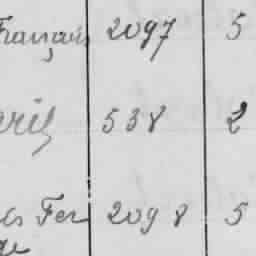 Français 2097 5
538 2
Fer 2098 5